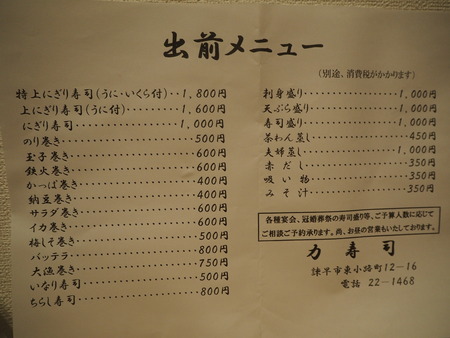 出前メニュー
(別途、消費税がかかります)
特上にぎり寿司(うに・いくら付)‥1,800円
上にぎり寿司(うに付)‥‥‥‥1,600円
にぎり寿司‥‥‥‥‥‥‥‥1,000円
のり巻き‥‥‥‥‥‥‥‥‥500円
玉子巻き‥‥‥‥‥‥‥‥‥600円
鉄火巻き‥‥‥‥‥‥‥‥‥600円
かっぱ巻き‥‥‥‥‥‥‥‥400円
納豆巻き‥‥‥‥‥‥‥‥‥400円
サラダ巻き‥‥‥‥‥‥‥‥600円
イカ巻き‥‥‥‥‥‥‥‥‥600円
梅しそ巻き‥‥‥‥‥‥‥‥500円
バッテラ‥‥‥‥‥‥‥‥‥800円
大漁巻き‥‥‥‥‥‥‥‥‥750円
いなり寿司‥‥‥‥‥‥‥‥500円
ちらし寿司‥‥‥‥‥‥‥‥800円
利身盛り‥‥‥‥‥‥‥‥1,000円
天ぷら盛り‥‥‥‥‥‥‥1,000円
寿司盛り‥‥‥‥‥‥‥‥1,000円
茶わん蒸し‥‥‥‥‥‥‥‥450円
夫婦蒸し‥‥‥‥‥‥‥‥1,000円
赤だし‥‥‥‥‥‥‥‥‥350円
吸い物‥‥‥‥‥‥‥‥‥350円
みそ汁‥‥‥‥‥‥‥‥‥350円
各種宴会、冠婚葬祭の寿司盛り等、ご予算人数に応じて
ご相談ご予約承ります。尚、お昼の営業もいたしております。
力寿司
諫早市東小路町12-16
電話 22-1468